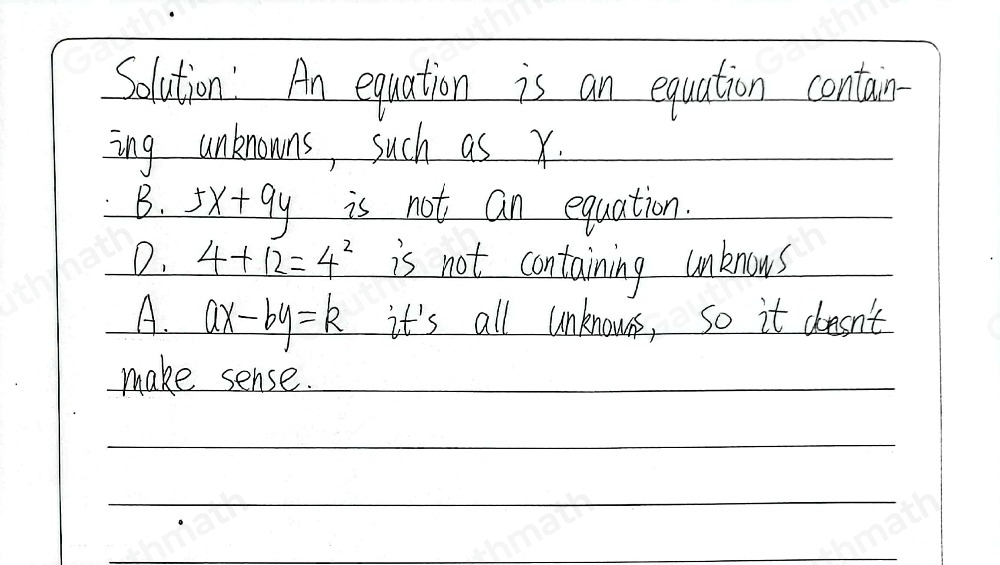 Solution: An equation is an equation contain-
ing unknowns, such as x.
B. 5x+9y is not an equation.
D. 4+12=4² is not containing unknows
A. ax-by=k it's all unknowns, so it doesn't
make sense.
Gauthmath